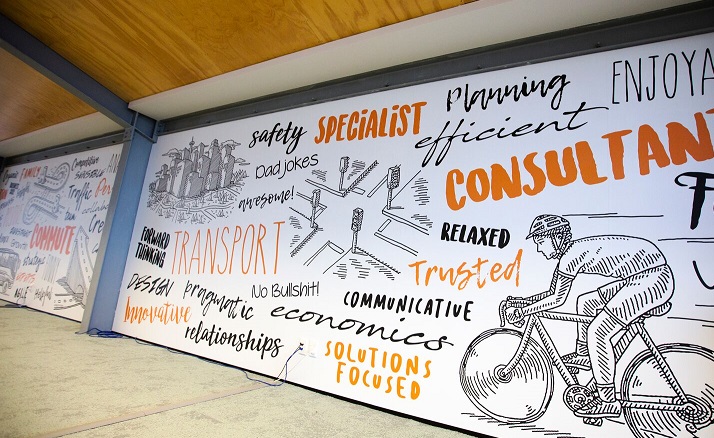 safety
SPECIALIST
Planning
ENJOYA
Dad jokes
efficient
awesome!
CONSULTANT
FORWARD
THINKING
TRANSPORT
RELAXED
Trusted
DESIGN
pragmatic
No Bullshit!
COMMUNICATIVE
Innovative
relationships
economics
SOLUTIONS
FOCUSED
FAMILY
Competitive
Traffic
COMMUTE